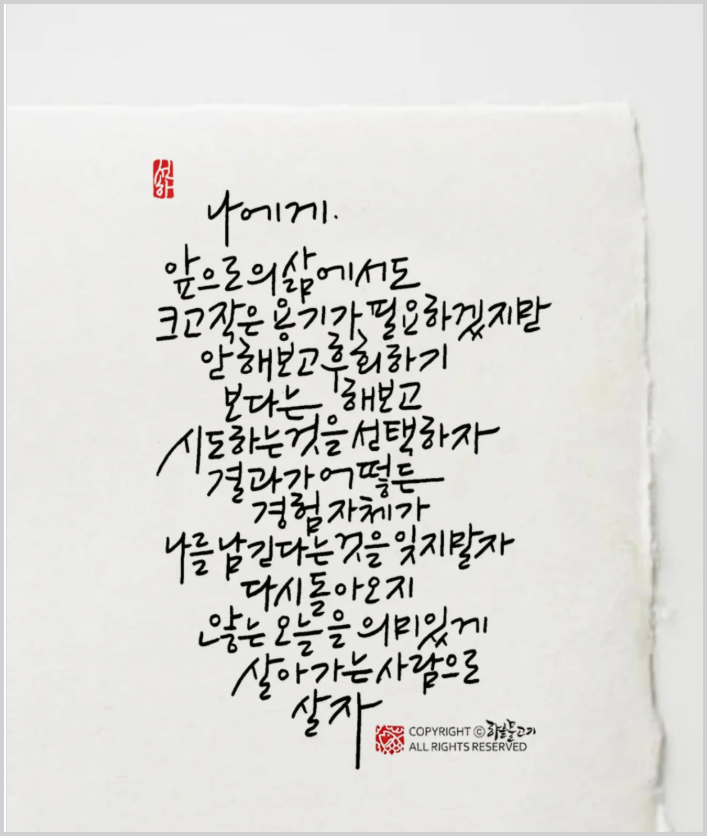 나에게.
앞으로의 삶에서도
크고 작은 용기가 필요하겠지만
안 해보고 후회하기
보다는 해보고
시도하는 것을 선택하자
결과가 어떻든
경험 자체가
나를 남긴다는 것을 잊지말자
다시 돌아오지
않는 오늘을 의미있게
살아가는 사람으로
살자
COPYRIGHT ©
ALL RIGHTS RESERVED